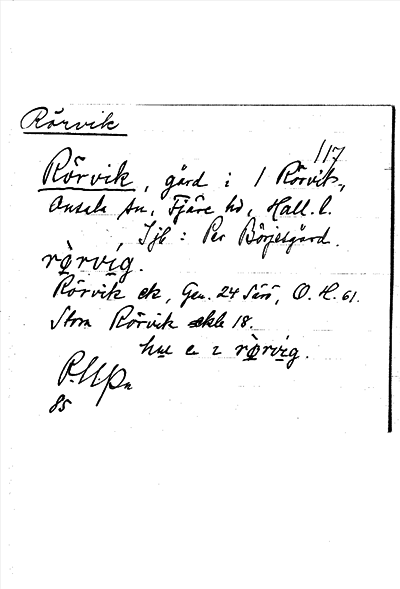 Rörvik
117
Rörvik, gård i 1 Rörvik,
Onsala sn, Fjäre hd, Hall. l.
Ijfr : Per Börjesgård.
rö̀rvíg.
Rörvik ek, Gen. 24 Särö, O. H. 61.
Stom Rörvik ekbl 18.
hue e. i rö̀rvig.
85